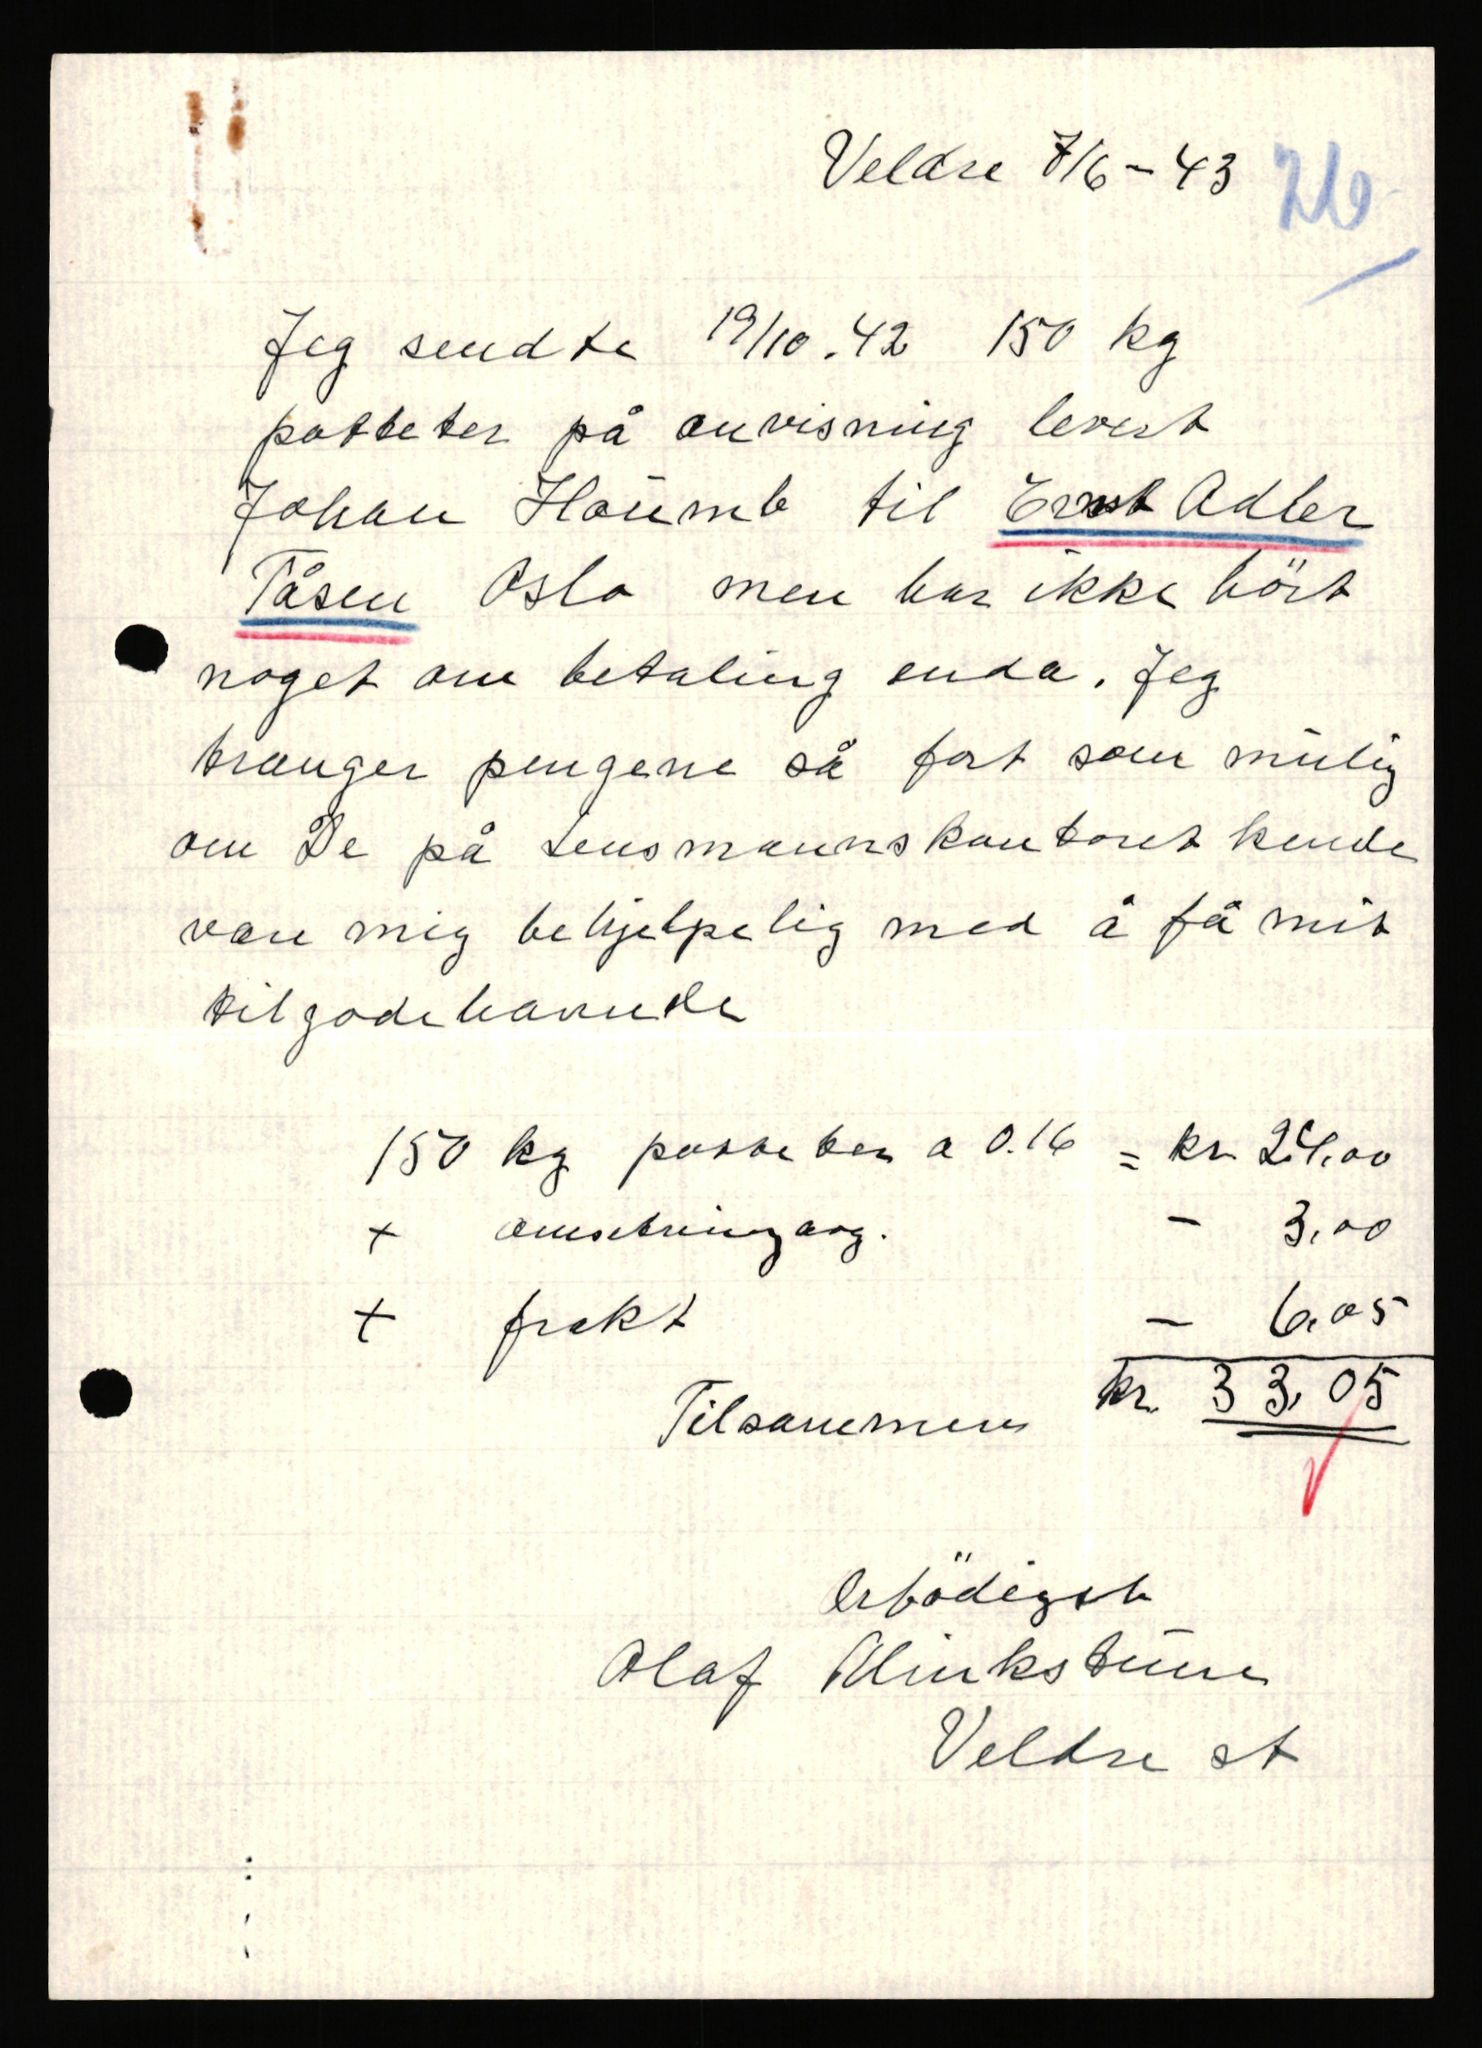 Veldre 7/6 - 43
26
Jeg sendte 19/10.42 150 kg
potteter på anvisning levert
Johan Haumb til Ernst Adler
Tåsen Oslo men har ikke hört
noget om betaling enda. Jeg
trænger pengene så fort som mulig
om De på Lensmannskontoret kunde
være mig behjelpelig med å få mit
tilgodehavende
150 kg potteter a 0.16 = kr 24,00
+ omsetningavg. - 3,00
+ frakt - 6,05
Tilsammen kr. 33,05
Erbödigst
Olaf
Veldre st